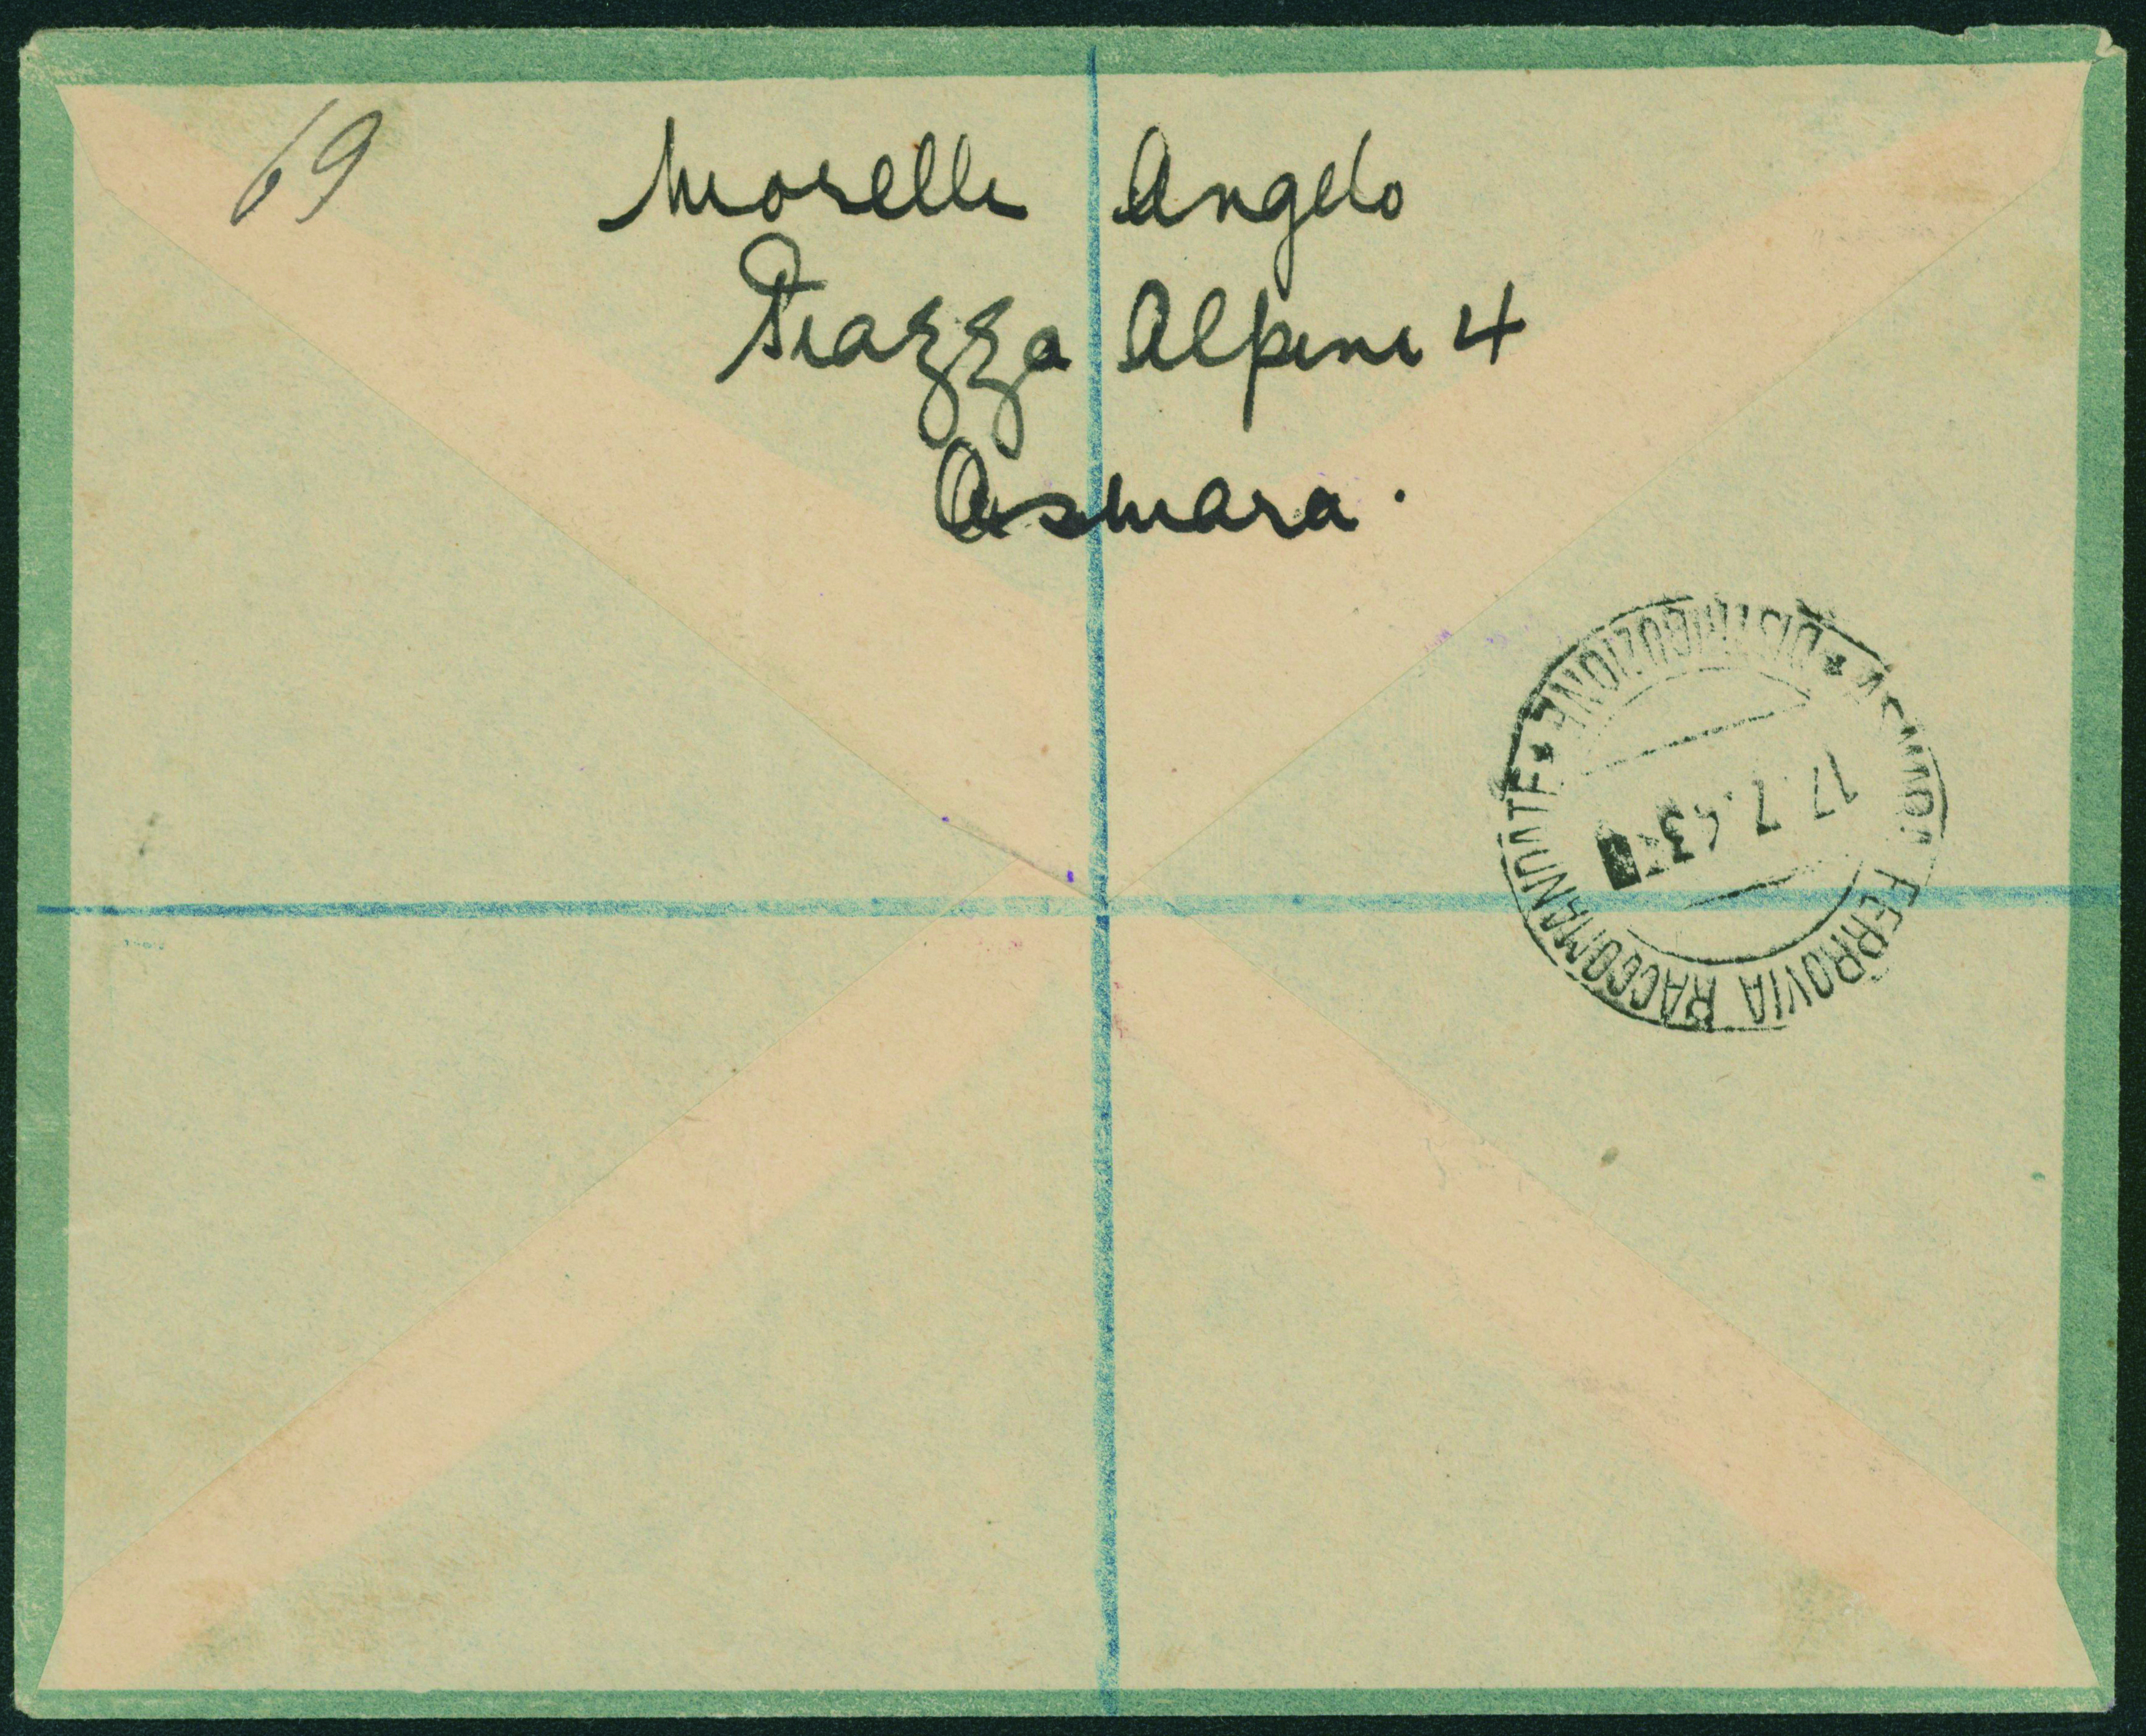 69
Morelli Angelo
Piazza Alpini 4
Asmara.
ASMARA FERROVIA RACCOMANDATE * DISTRIBUZIONE *
17.7.43